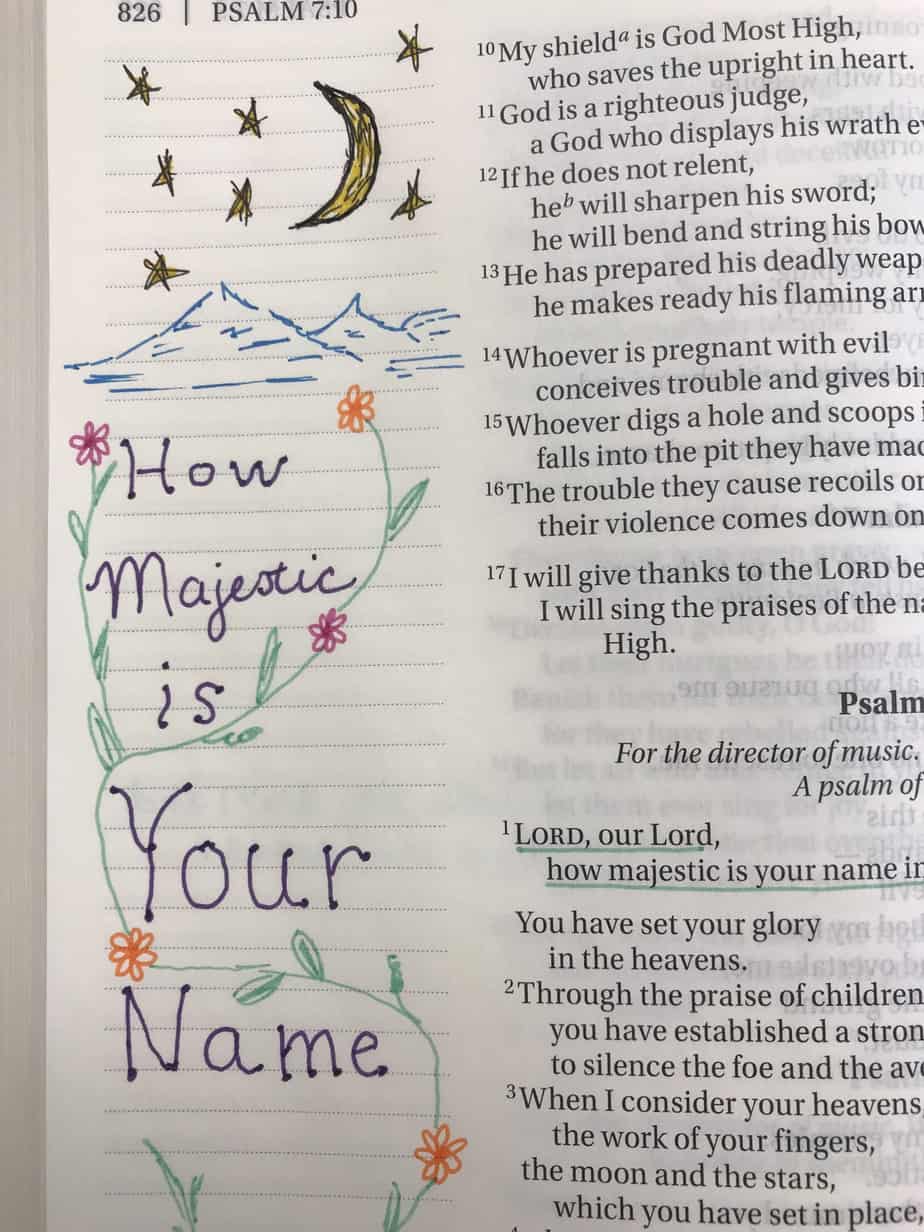 826 | PSALM 7:10
How
Majestic
is
Your
Name
10 My shield a is God Most High,
who saves the upright in heart.
11 God is a righteous judge,
a God who displays his wrath
12 If he does not relent,
he b will sharpen his sword;
he will bend and string his bow
13 He has prepared his deadly
he makes ready his flaming
14 Whoever is pregnant with evil
conceives trouble and gives
15 Whoever digs a hole and scoops
falls into the pit they have
16 The trouble they cause recoils
their violence comes down on
17 I will give thanks to the LORD
I will sing the praises of the
High.
Psalm
For the director of music.
A psalm of
1 LORD, our Lord,
how majestic is your name in
You have set your glory
in the heavens.
2 Through the praise of children
you have established a
to silence the foe and the
3 When I consider your heavens,
the work of your fingers,
the moon and the stars,
which you have set in place,